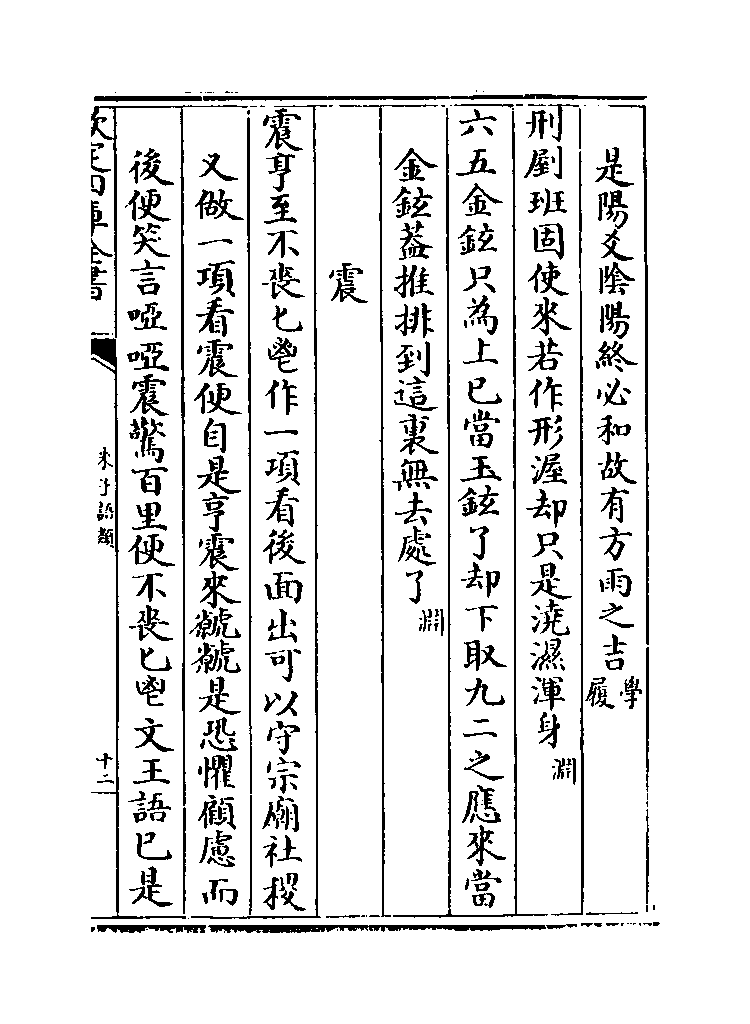 是陽爻陰陽終必和故有方雨之吉學履
刑剭班固使來若作形渥却只是澆濕渾身淵
六五金鉉只為上已當玉鉉了却下取九二之應來當
金鉉葢推排到這裏無去處了淵
震
震亨至不喪匕鬯作一項看後面出可以守宗廟社稷
又做一項看震便自是亨震來虩虩是恐懼顧慮而
後便笑言啞啞震驚百里便不喪匕鬯文王語已是
欽定四庫全書
朱子語類
十二